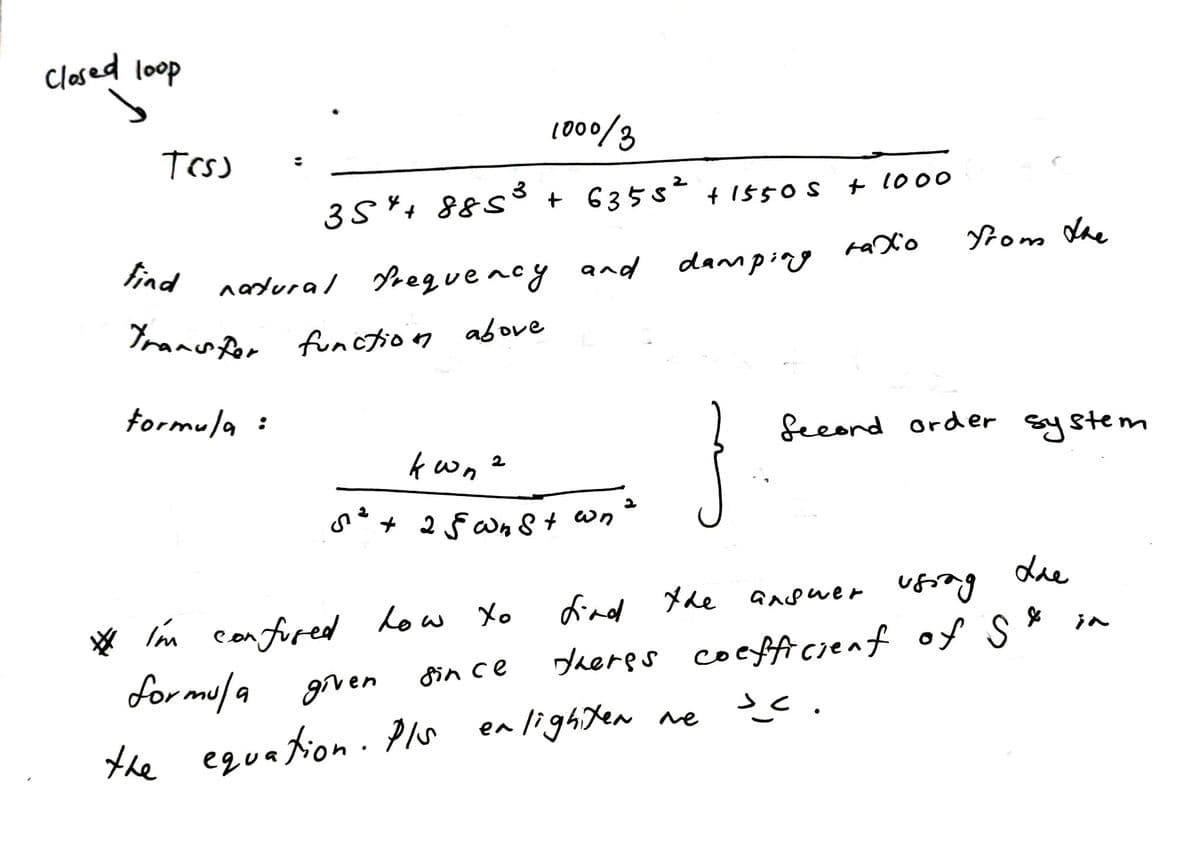 Closed loop
T(s) = 1000/3
3s⁴ + 88s³ + 635s² + 1550s + 1000
find natural frequency and damping ratio from the
Transfer function above
formula :
kωn²
s² + 2ξωns + ωn²
} Second order system
* I'm confused how to find the answer using the
formula given since theres coefficient of s⁴ in
the equation. Pls enlighten me >_<.